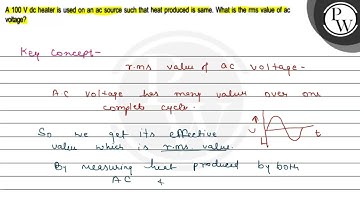 A 100 V dc heater is used on an ac source such that heat produced is same. What is the rms value of ac
voltage?
PW
Key Concept-
r.ms value of ac voltage.
AC voltage has many values over one
complete cycle.
So we get its effective
value which is r.ms value.
V
t
By measuring heat produced by both
AC